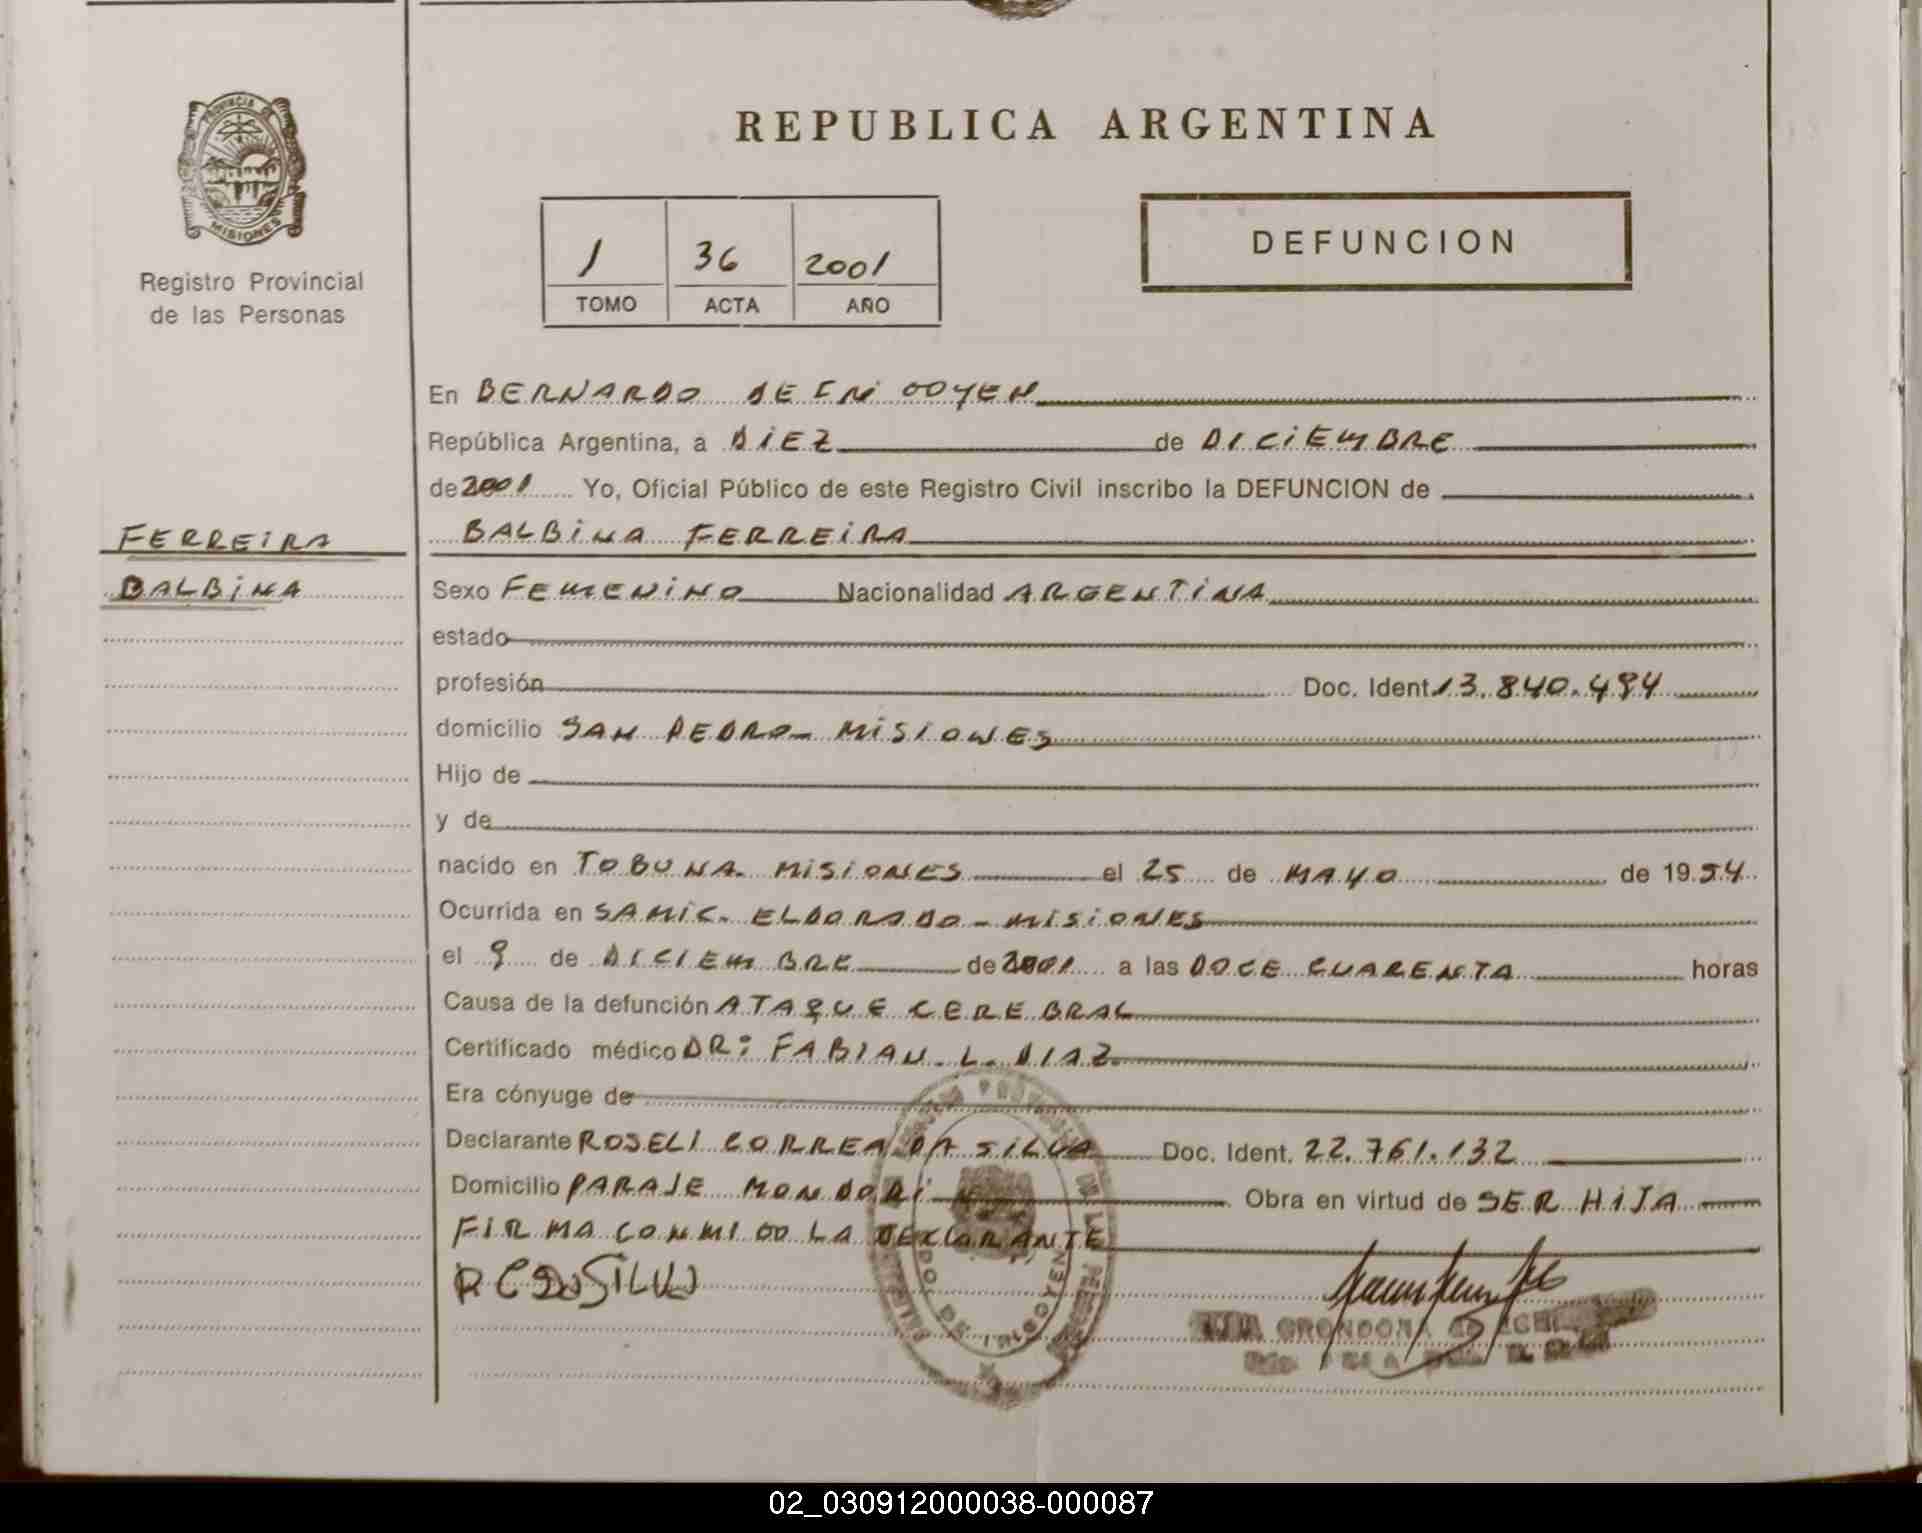 PROVINCIA
MISIONES
Registro Provincial
de las Personas
REPUBLICA ARGENTINA
1 36 2001
TOMO ACTA AÑO
DEFUNCION
En BERNARDO DE IRIGOYEN
República Argentina, a DIEZ de DICIEMBRE
de 2001 Yo, Oficial Público de este Registro Civil inscribo la DEFUNCION de
FERREIRA
BALBINA
BALBINA FERREIRA
Sexo FEMENINO Nacionalidad ARGENTINA
estado
profesión Doc. Ident. 13.840.494
domicilio SAN PEDRO - MISIONES
Hijo de
y de
nacido en TOBUNA. MISIONES el 25 de MAYO de 1954
Ocurrida en SAMIC. ELDORADO - MISIONES
el 9 de DICIEMBRE de 2001 a las DOCE CUARENTA horas
Causa de la defunción ATAQUE CEREBRAL
Certificado médico DR: FABIAN. L. DIAZ
Era cónyuge de
Declarante ROSELI CORREA DA SILVA Doc. Ident. 22.761.132
Domicilio PARAJE MONDORI Obra en virtud de SER HIJA
FIRMA CONMIGO LA DECLARANTE
GRONDONA de
02_030912000038-000087